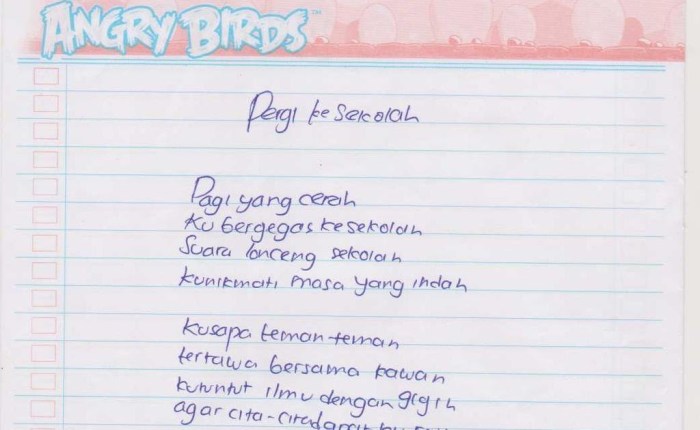 ANGRY BIRDS™
Pergi ke Sekolah
Pagi yang cerah
Ku bergegas kesekolah
Suara lonceng sekolah
kunikmati masa yang indah
kusapa teman-teman
tertawa bersama kawan
kutuntut ilmu dengan gigih
agar cita-cita